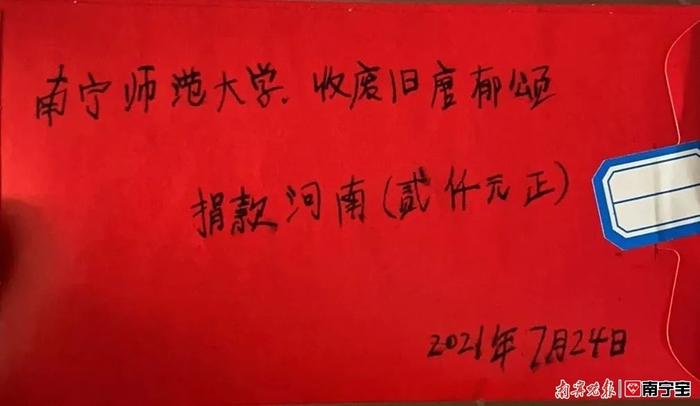 南宁师范大学.收废旧唐郁颂
捐款河南(贰仟元正)
2021年7月24日
南宁晚报 南宁宝